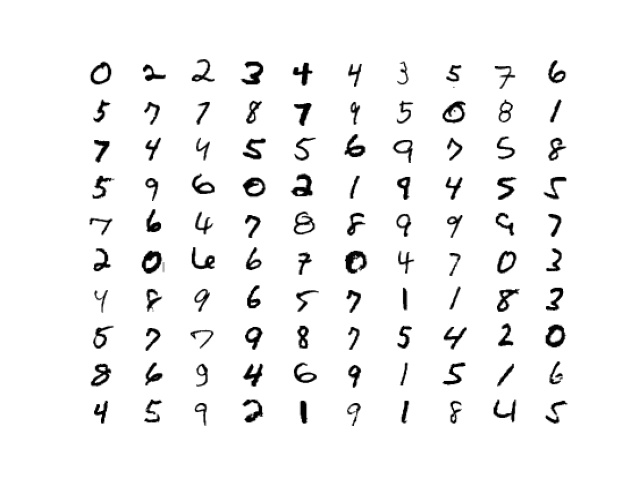 0 2 2 3 4 4 3 5 7 6
5 7 7 8 7 9 5 0 8 1
7 4 4 5 5 6 9 7 5 8
5 9 6 0 2 1 9 4 5 5
7 6 4 7 8 8 9 9 9 7
2 0 6 6 7 0 4 7 0 3
4 8 9 6 5 7 1 1 8 3
5 7 7 9 8 7 5 4 2 0
8 6 9 4 6 9 1 5 1 6
4 5 9 2 1 9 1 8 4 5